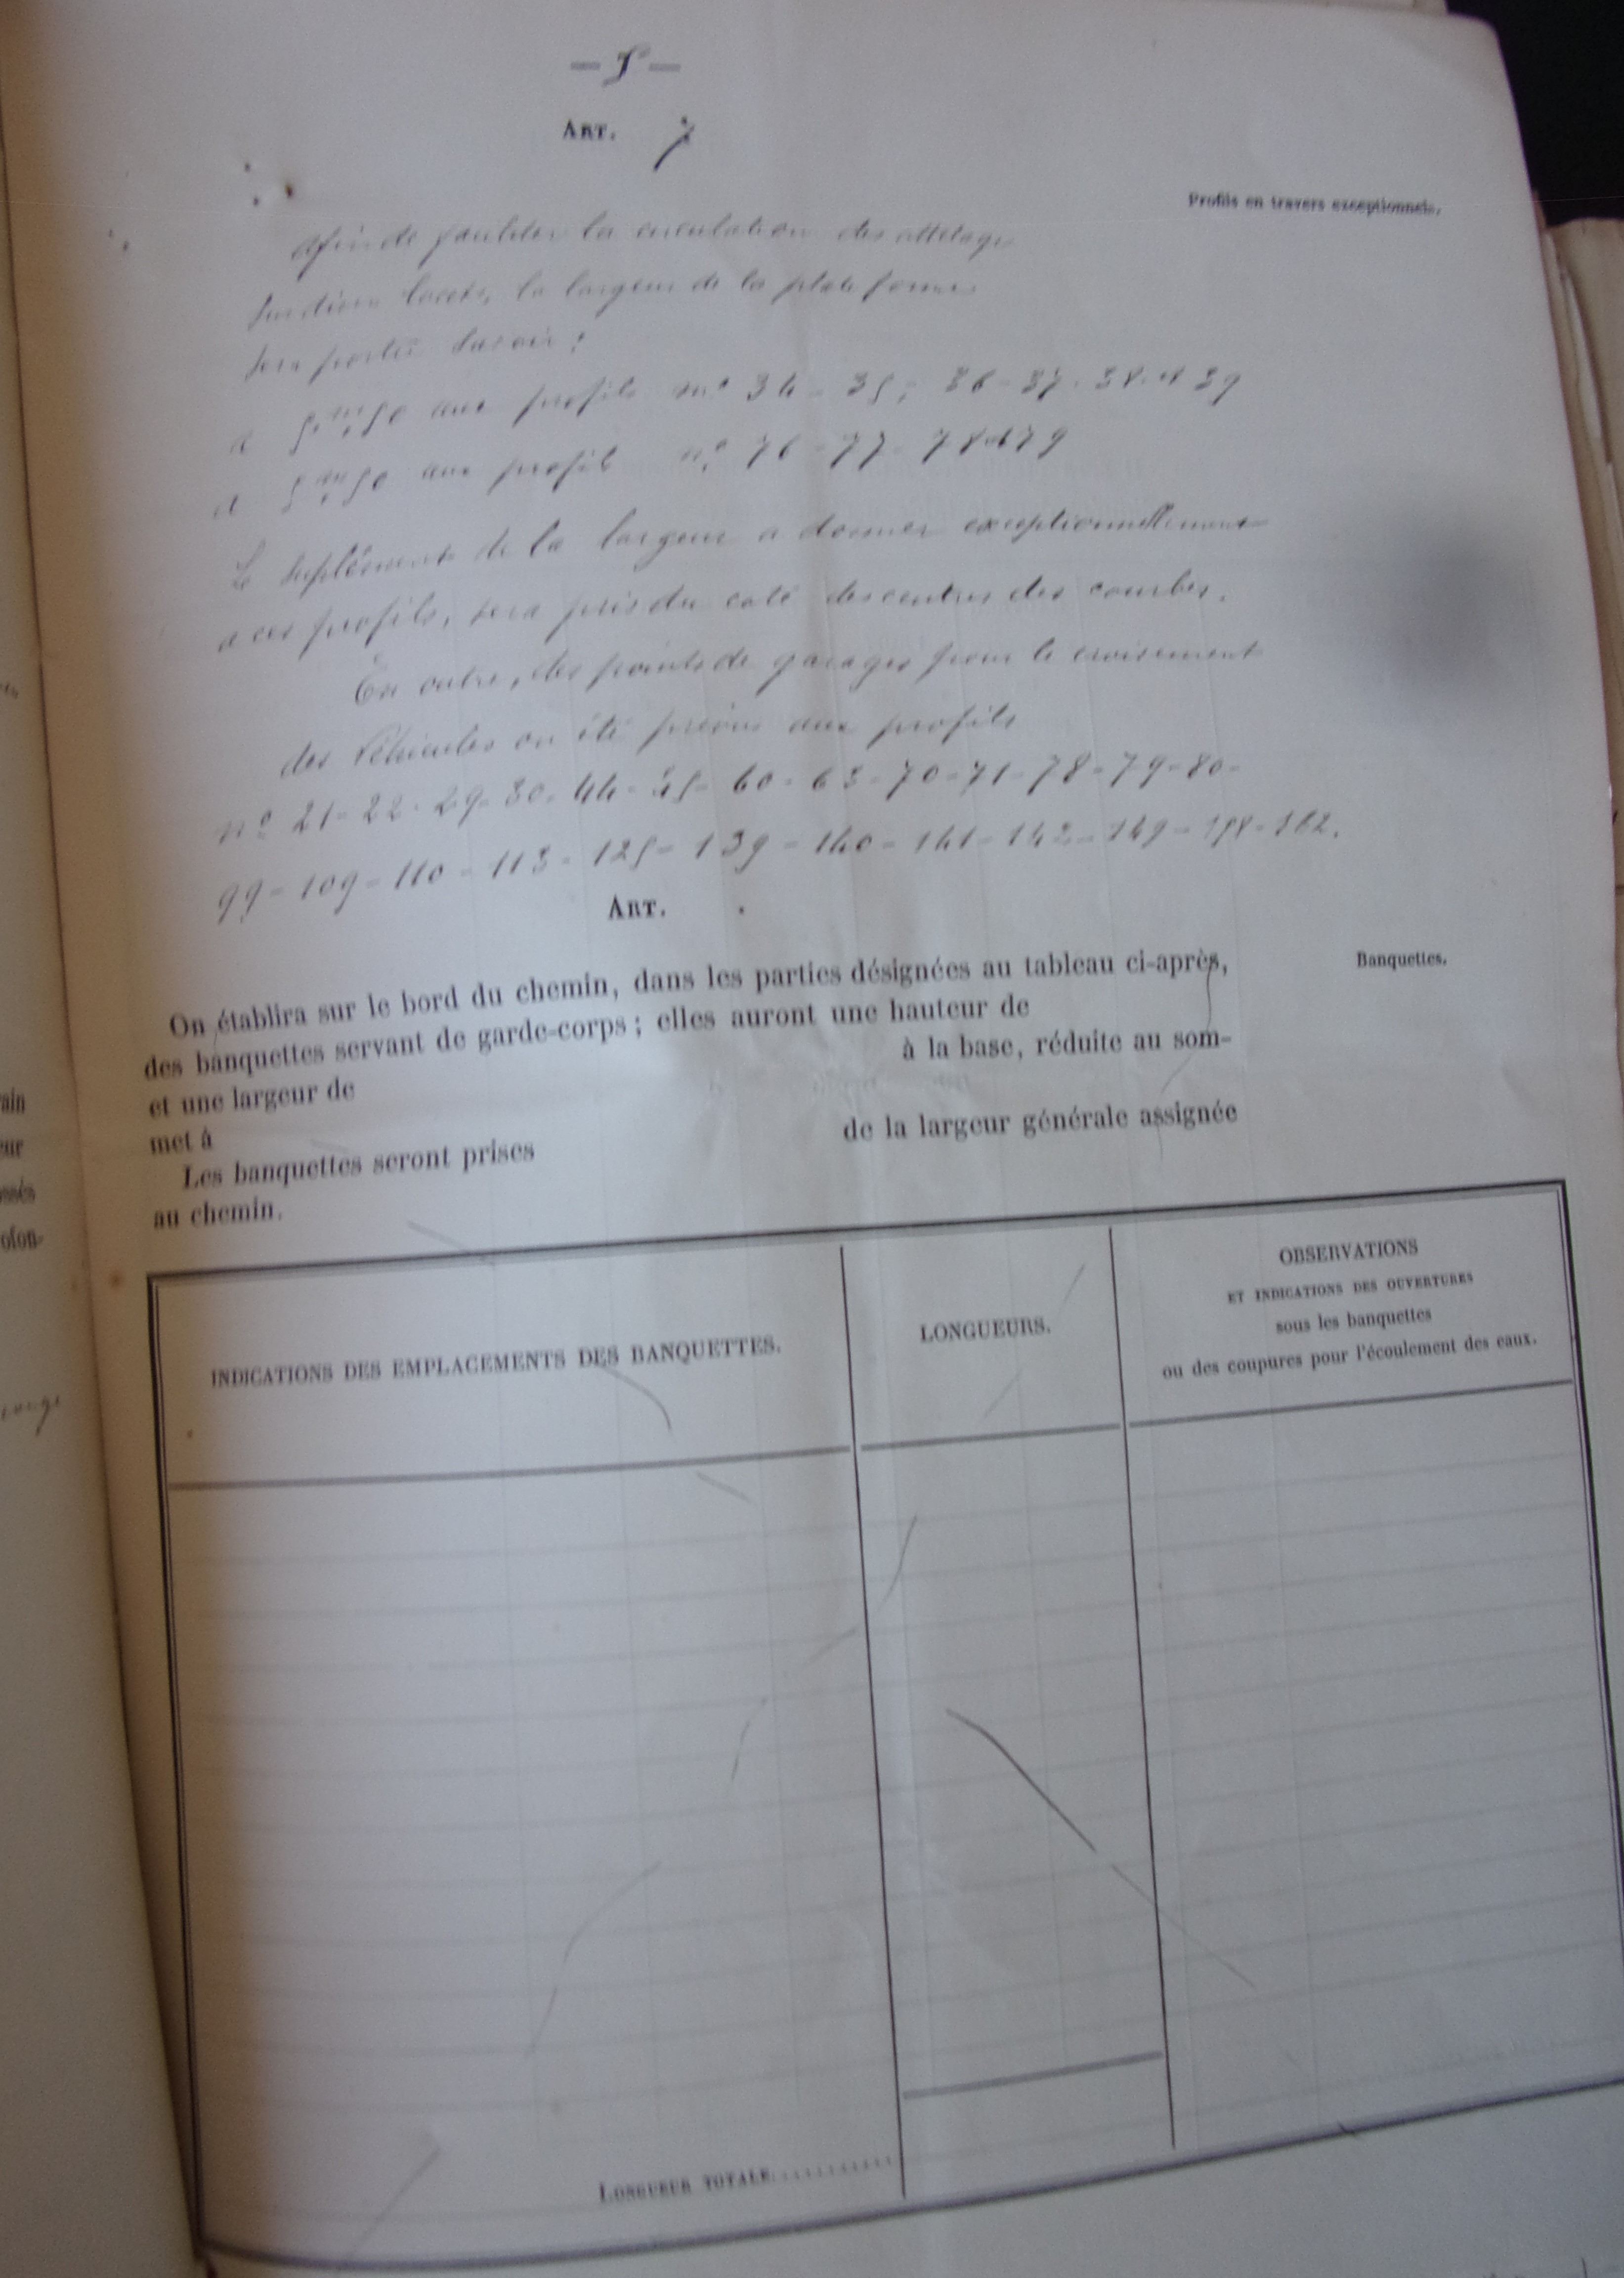 — 5 —
ART. 7
Profils en travers exceptionnels.
Afin de faciliter la circulation des attelages
sur divers lacets, la largeur de la plate forme
sera portée savoir :
a 5m,50 aux profils nos 34 - 35, 36 - 37 - 38 et 39
a 5m,50 aux profils no 76 - 77 - 78 et 79
Le suplément de la largeur a donner exceptionnellement
a ces profils, sera pris du coté des centres des courbes.
En outre, des points de garages pour le croisement
des Véhicules on été prévus aux profils
no 21 - 22 - 29 - 30 - 44 - 45 - 60 - 63 - 70 - 71 - 78 - 79 - 80 -
99 - 109 - 110 - 113 - 125 - 139 - 140 - 141 - 142 - 149 - 158 - 162.
ART.
Banquettes.
On établira sur le bord du chemin, dans les parties désignées au tableau ci-après,
des banquettes servant de garde-corps ; elles auront une hauteur de
et une largeur de à la base, réduite au som-
met à
Les banquettes seront prises de la largeur générale assignée
au chemin.
INDICATIONS DES EMPLACEMENTS DES BANQUETTES.
LONGUEURS.
OBSERVATIONS
ET INDICATIONS DES OUVERTURES
sous les banquettes
ou des coupures pour l'écoulement des eaux.
LONGUEUR TOTALE...........
ain
eur
ossés
ofon-